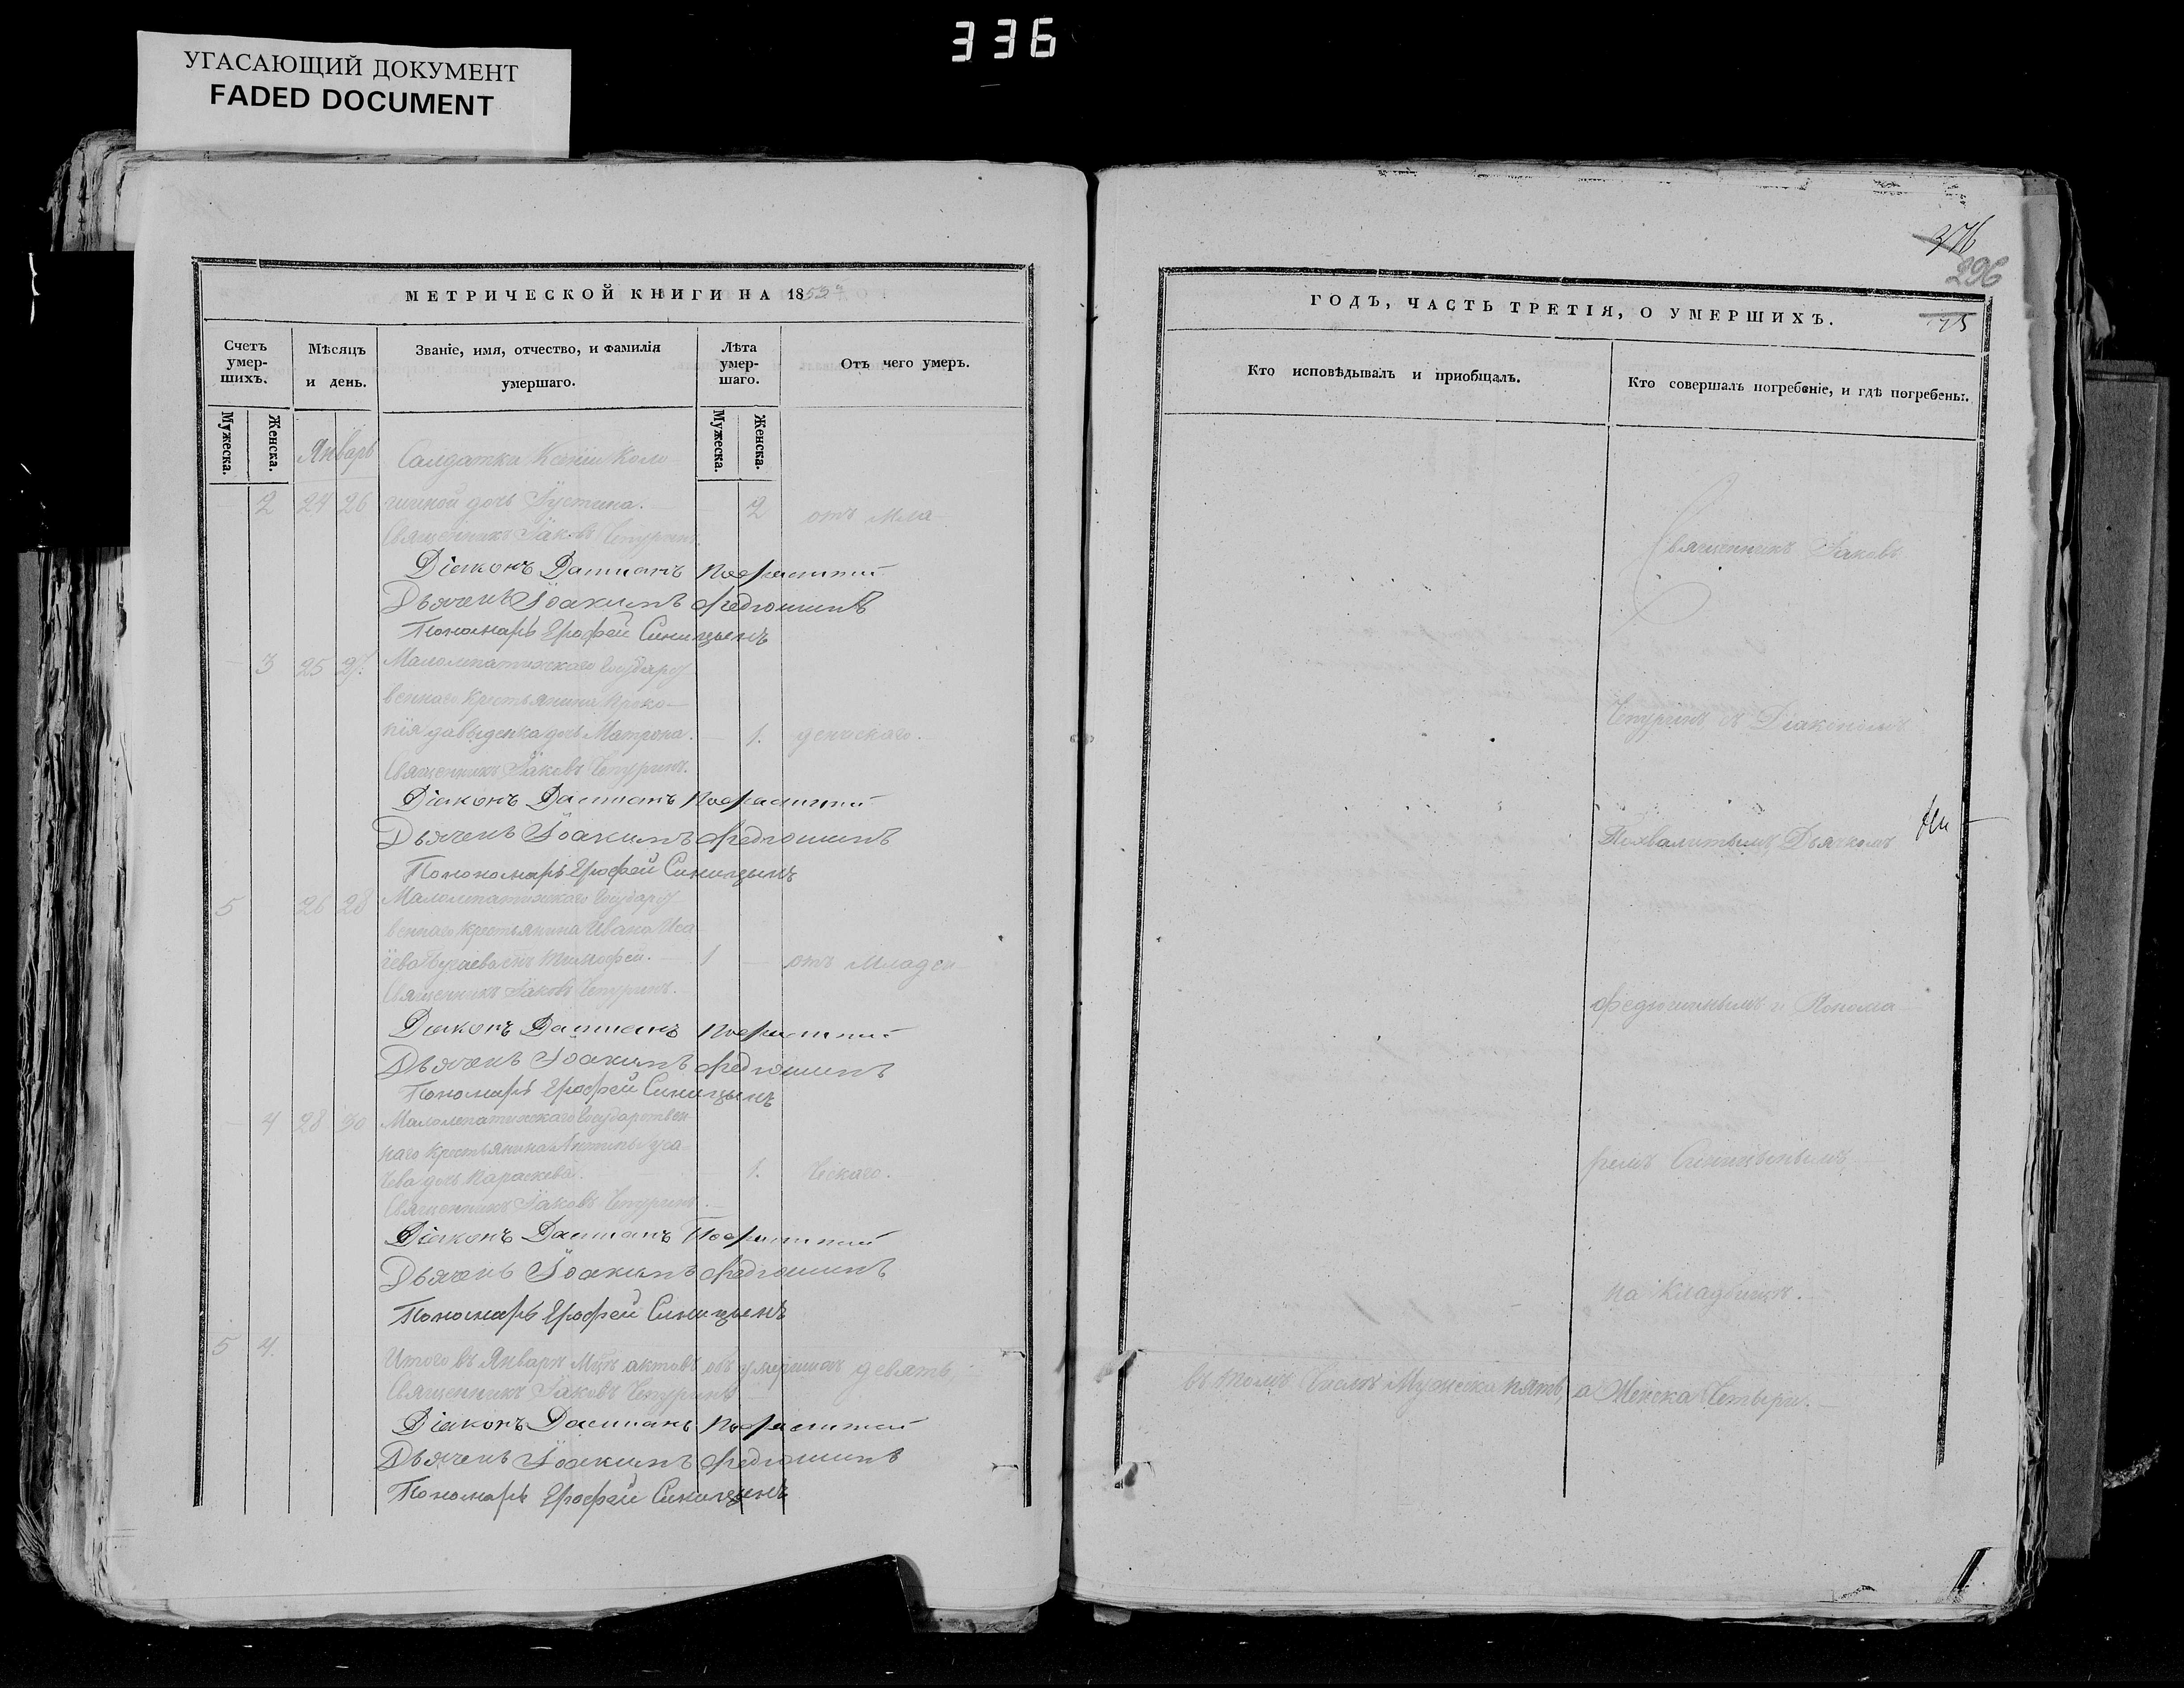 336
УГАСАЮЩИЙ ДОКУМЕНТ
FADED DOCUMENT
МЕТРИЧЕСКОЙ КНИГИ НА 1853й
Счетъ умер-шихъ.
Мужеска.
Женска.
Мѣсяцъ и день.
Званіе, имя, отчество, и фамилія умершаго.
Лѣта умер-шаго.
Мужеска.
Женска.
Отъ чего умеръ.
Январь
Салдатки Ксеніи Коло
2 24 26 дочь Іустина. 2 отъ Мла
Священникъ Іаковъ Чепуринъ.
Діаконъ Даміанъ
Дьячекъ Іоакимъ Федюшинъ
Пономарь Ерофей Синицынъ
3 25 27. Малолепатихскаго Государст
веннаго крестьянина Проко
пія давыденка дочь Матрона. 1. денческаго.
Священникъ Іаковъ Чепуринъ.
Діаконъ Даміанъ
Дьячекъ Іоакимъ Федюшинъ
Пономарь Ерофей Синицынъ
5 26 28 Малолепатихскаго Государст
веннаго крестьянина Ивана
сынъ Тимофей. 1 отъ Младен
Священникъ Іаковъ Чепуринъ.
Діаконъ Даміанъ
Дьячекъ Іоакимъ Федюшинъ
Пономарь Ерофей Синицынъ
4 28 30 Малолепатихскаго Государствен
наго крестьянина
дочь Параскева. 1. ческаго.
Священникъ Іаковъ Чепуринъ.
Діаконъ Даміанъ
Дьячекъ Іоакимъ Федюшинъ
Пономарь Ерофей Синицынъ
5 4. Итого въ Январѣ Мцѣ актовъ объ умершихъ девять
Священникъ Іаковъ Чепуринъ
Діаконъ Даміанъ
Дьячекъ Іоакимъ Федюшинъ
Пономарь Ерофей Синицынъ
296
ГОДЪ, ЧАСТЬ ТРЕТІЯ, О УМЕРШИХЪ.
Кто исповѣдывалъ и пріобщалъ.
Кто совершалъ погребеніе, и гдѣ погребены.
Священникъ Іаковъ
Чепуринъ съ Діакономъ
Дьячкомъ
Федюшинымъ и Понома
ремъ Синицынымъ
на Кладбищѣ.
въ томъ Числѣ Мужеска пять, а Женска Четыри.